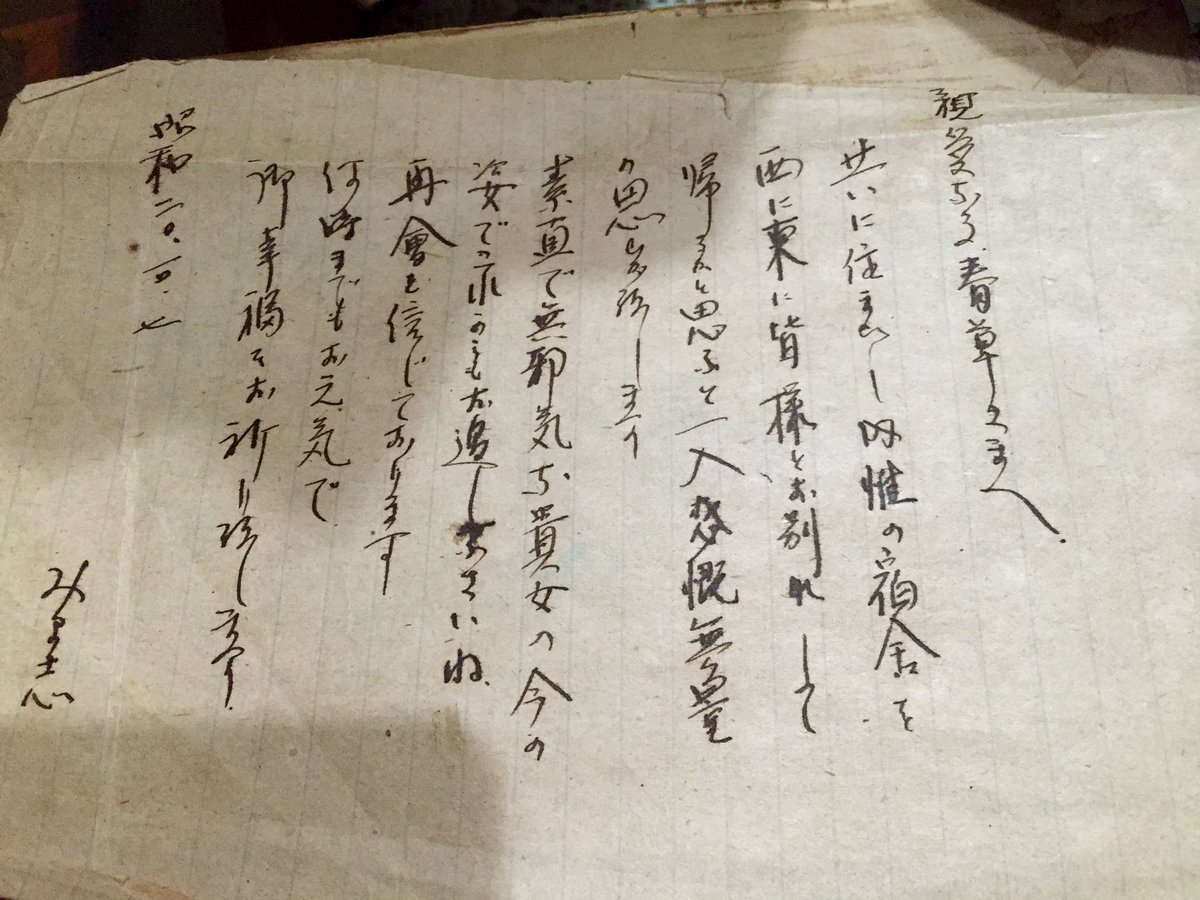 親愛なる春草さまへ
共に住まひし此惟の宿舎を
西に東に皆様とお別れして
帰るかと思ふと一入感慨無量
の思ひが致します
素直で無邪気な貴女の今の
姿でつれお過しなさいね
再會を信じております
何時までもお元気で
御幸福をお祈り致します
昭和二〇、一〇、七